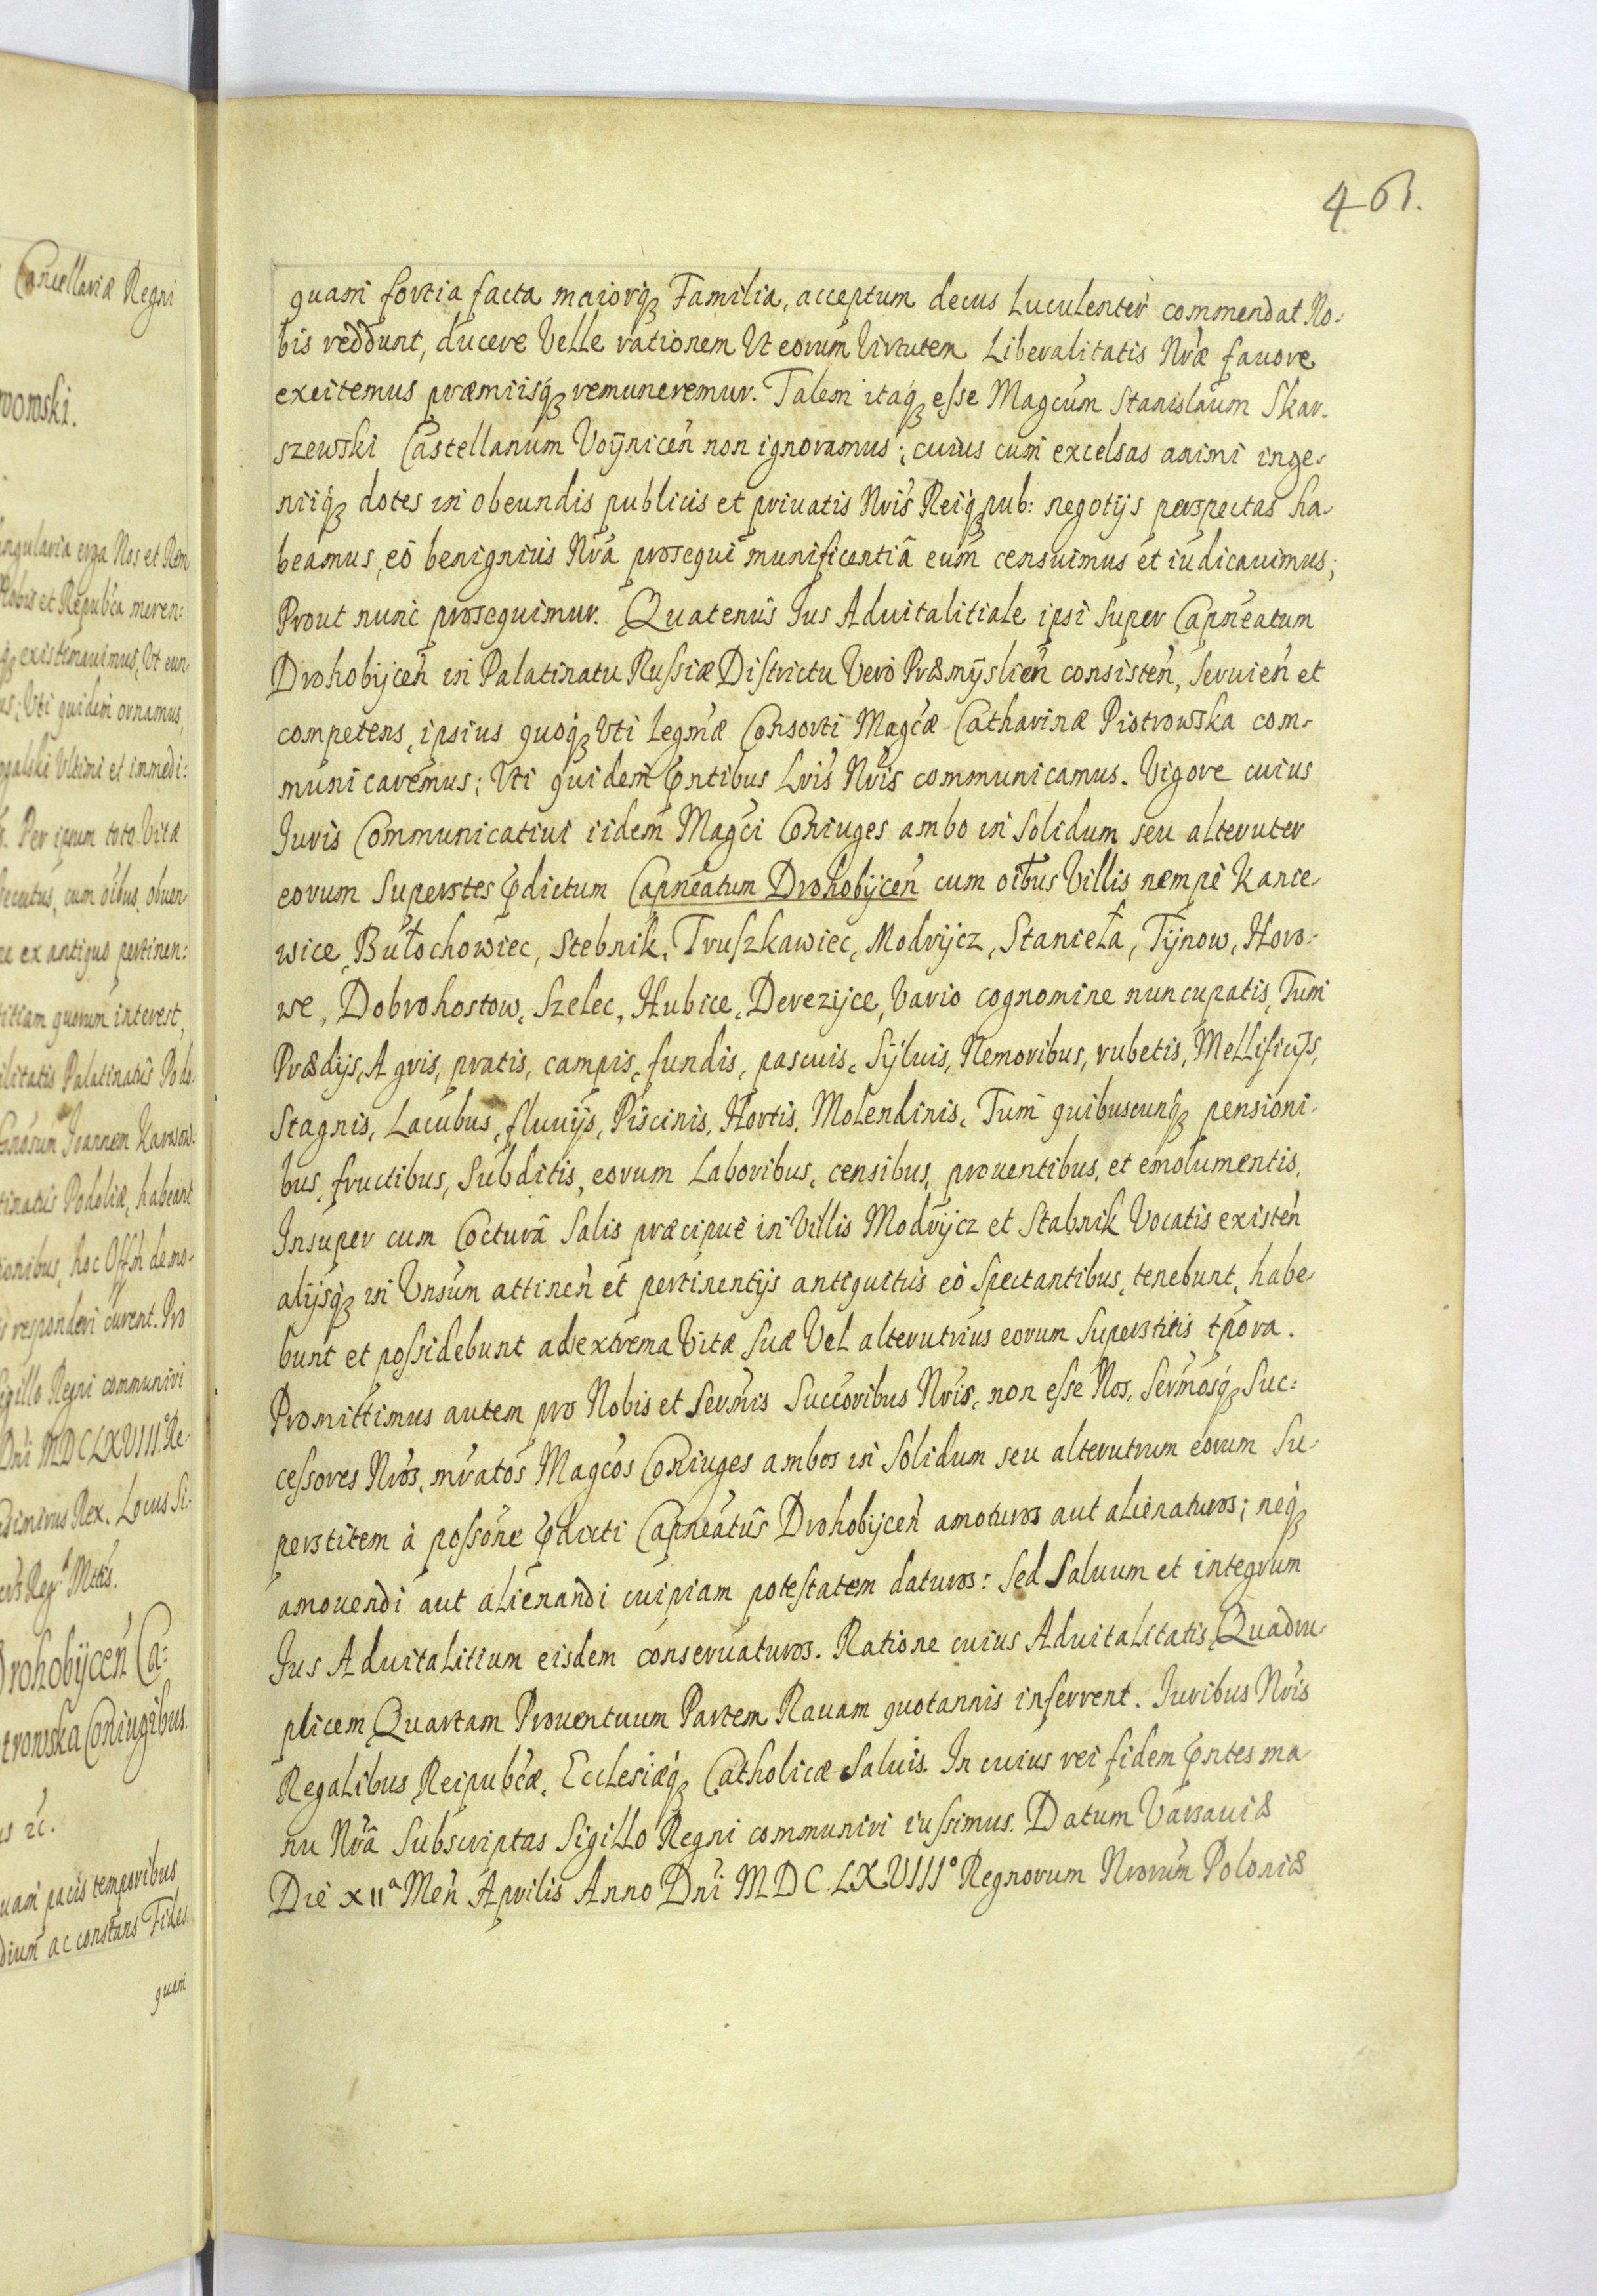 Cancellariæ Regni
wowski.
ngularia erga Nos et Rem
Nobis et Repub'ca meren:
q₃ existimauimus, Ut eun
us; Uti quidem ornamus,
ogalski Ultimi et immedi:
s. Per ipsum toto Vitæ
secutus, cum oibus obuen-
ce ex antiquo pertinen:
titiam quorum interest,
ilitatis Palatinatus Podo-
Gnosum Joannem Karwow:
tinatus Podoliæ, habeant
ionibus, hoc Offm demo-
s responderi curent. Pro
Sigillo Regni communiri
Dni MDCLXVIII° Re-
asimirus Rex. Locus Si-
Regᵃ Mttis.
Drohobycen̄ Ca:
trowska Coniugibus.
us ꝛc.
uam pacis temporibus
dium ac constans Fides
quam
461.
quam fortia facta maiorq₃ Familia, acceptum decus Luculenter commendat No-
bis reddunt, ducere Velle rationem Ut eorum Virtutem Liberalitatis Nr̄æ fauore
exeitemus præmiisq₃ remuneremur. Talem itaq₃ esse Magcum Stanislaum Skar-
szewski Castellanum Voÿnicen̄ non ignoramus; cuius cum excelsas animi inge-
niiq₃ dotes in obeundis publicis et priuatis Nr̄is Reiq₃ pub: negotijs perspectas ha-
beamus, eò benigniùs Nr̄a prosequi munificentiâ eum censuimus et iudicauimus;
Prout nunc prosequimur. Quatenus Jus Aduitalitiale ipsi super Capneatum
Drohobÿcen̄ in Palatinatu Russiæ Districtu Verò Præmÿslien̄ consisten̄, seruien̄ et
competens, ipsius quoq₃ Uti Legmæ Consorti Magcæ Catharinæ Piotrowska com-
municaremus; Uti quidem p̄ntibus Lr̄is Nr̄is communicamus. Vigore cuius
Juris Communicatiui iidem Magci Coniuges ambo in solidum seu alteruter
eorum superstes p̄dictum Capneatum Drohobÿcen̄ cum oībus Villis nempe Kanie-
wice, Bułochowiec, Stebnik, Truszkawiec, Modrÿcz, Stanieła, Tÿnow, Horo-
we, Dobrohostow, Szelec, Hubice, Derezÿce, Vario cognomine nuncupatis, Tum
Prædijs, Agris, pratis, campis, fundis, pascuis, Sÿluis, Nemoribus, rubetis, Mellificijs,
Stagnis, Lacubus, fluuijs, Piscinis, Hortis, Molendinis, Tum quibuscunq₃ pensioni-
bus, fructibus, Subditis, eorum Laboribus, censibus, prouentibus, et emolumentis,
Insuper cum Coctura Salis præcipuè in Villis Modrÿcz et Stabnik Vocatis existen̄
alijsq₃ in Unsum attinen̄ et pertinentijs antiquitus eò spectantibus, tenebunt, habe-
bunt et possidebunt ad extrema Vitæ suæ Vel alterutrius eorum superstitis tp̄ora.
Promittimus autem pro Nobis et Sermis Succoribus Nr̄is, non esse Nos, Sermosq₃ Suc:
cessores Nr̄os, mratos Magcos Coniuges ambos in solidum seu alterutrum eorum su-
perstitem à possone p̄dicti Capneatus Drohobÿcen̄ amoturos aut alienaturos; neq₃
amouendi aut alienandi cuipiam potestatem daturos: Sed Saluum et integrum
Jus Aduitalitium eisdem conseruaturos. Ratione cuius Aduitalitatis, Quadru-
plicem Quartam Prouentuum Partem Rauam quotannis inferrent. Juribus Nr̄is
Regalibus Reipub'cæ, Ecclesiæq₃ Catholicæ Saluis. In cuius rei fidem p̄ntes ma
nu Nr̄a Subscriptas Sigillo Regni communiri iussimus. Datum Varsauiæ
Die XIIᵃ Men̄ Aprilis Anno Dn̄i MDCLXVIII° Regnorum Nr̄orum Poloniæ